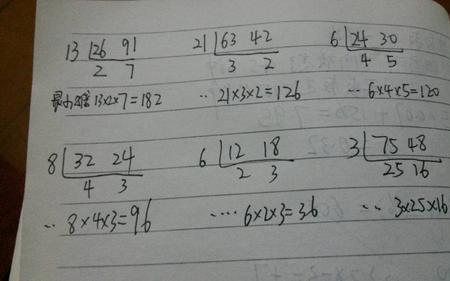 13 26 91 21 63 42 6 24 30
2 7 3 2 4 5
13×2×7=182 ‥ 21×3×2=126 ‥ 6×4×5=120
8 32 24 6 12 18 3 75 48
4 3 2 3 25 16
‥ 8×4×3=96 ‥‥ 6×2×3=36 ‥ 3×25×16